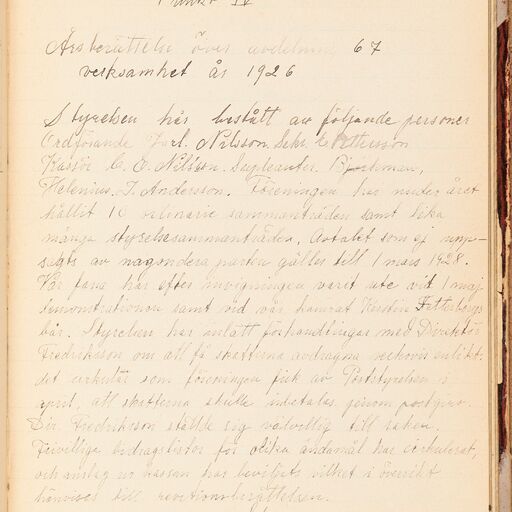 Punkt IV
Årsberättelse över avdelning 67
verksamhet år 1926
Styrelsen har bestått av följande personer
Ordförande Karl. Nilsson, Sekr. E Pettersson
Kassör C. O. Nilsson. Supleanter. Björkman,
Helenius, J. Andersson. Föreningen har under året
hållit 10 ordinarie sammanträden samt lika
många styrelsesammanträden. Avtalet som ej upp-
sagts av någondera parten gäller till 1 mars 1928.
Vår fana har efter invigningen varit ute vid 1 maj
demonstrationen samt vid vår kamrat Kerstin Zetterbergs
bår. Styrelsen har inlått förhandlingar med Direktör
Fredriksson om att få skatterna avdragna veckovis enligt
det cirkulär som föreningen fick av Poststyrelsen i
april, att skatterna skulle inbetalas genom postgiro.
Dir. Fredriksson ställde sig välvillig till saken.
Frivilliga bidragslistor för olika ändamål har cirkulerat,
och anslag ur kassan har beviljats vilket i övrigt
hänvises till revisionsberättelsen.